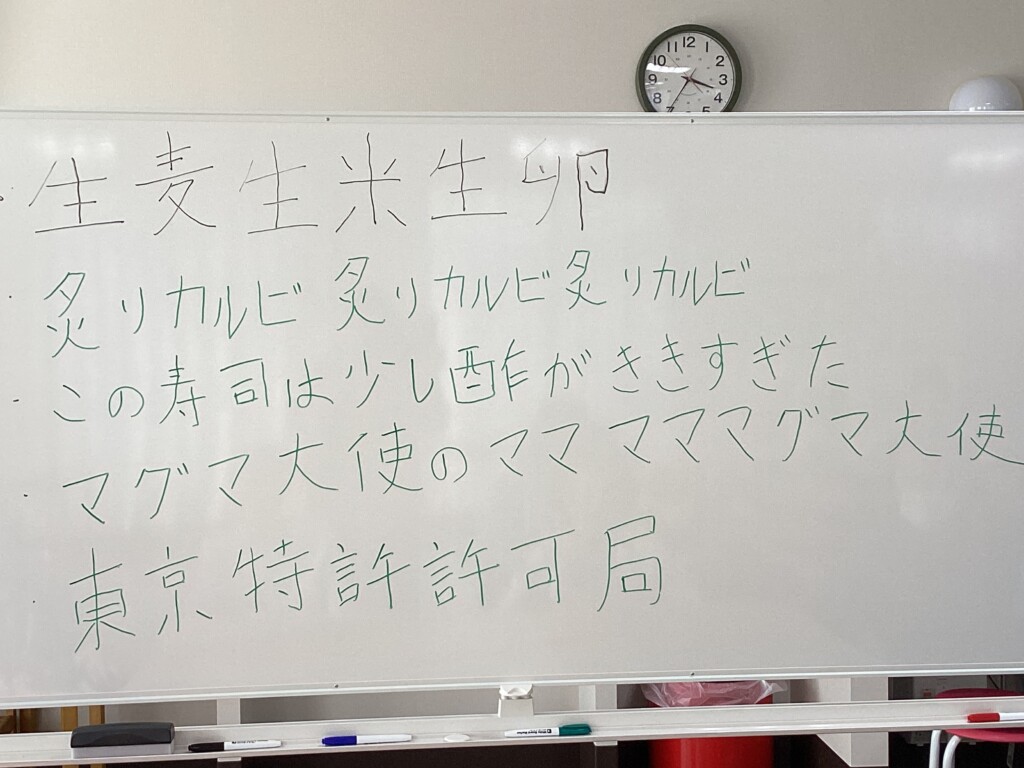 12
1
2
3
4
5
7
8
9
10
11
生麦生米生卵
炙りカルビ 炙りカルビ炙りカルビ
この寿司は少し酢がききすぎた
マグマ大使のママ ママママグマ大使
東京特許許可局